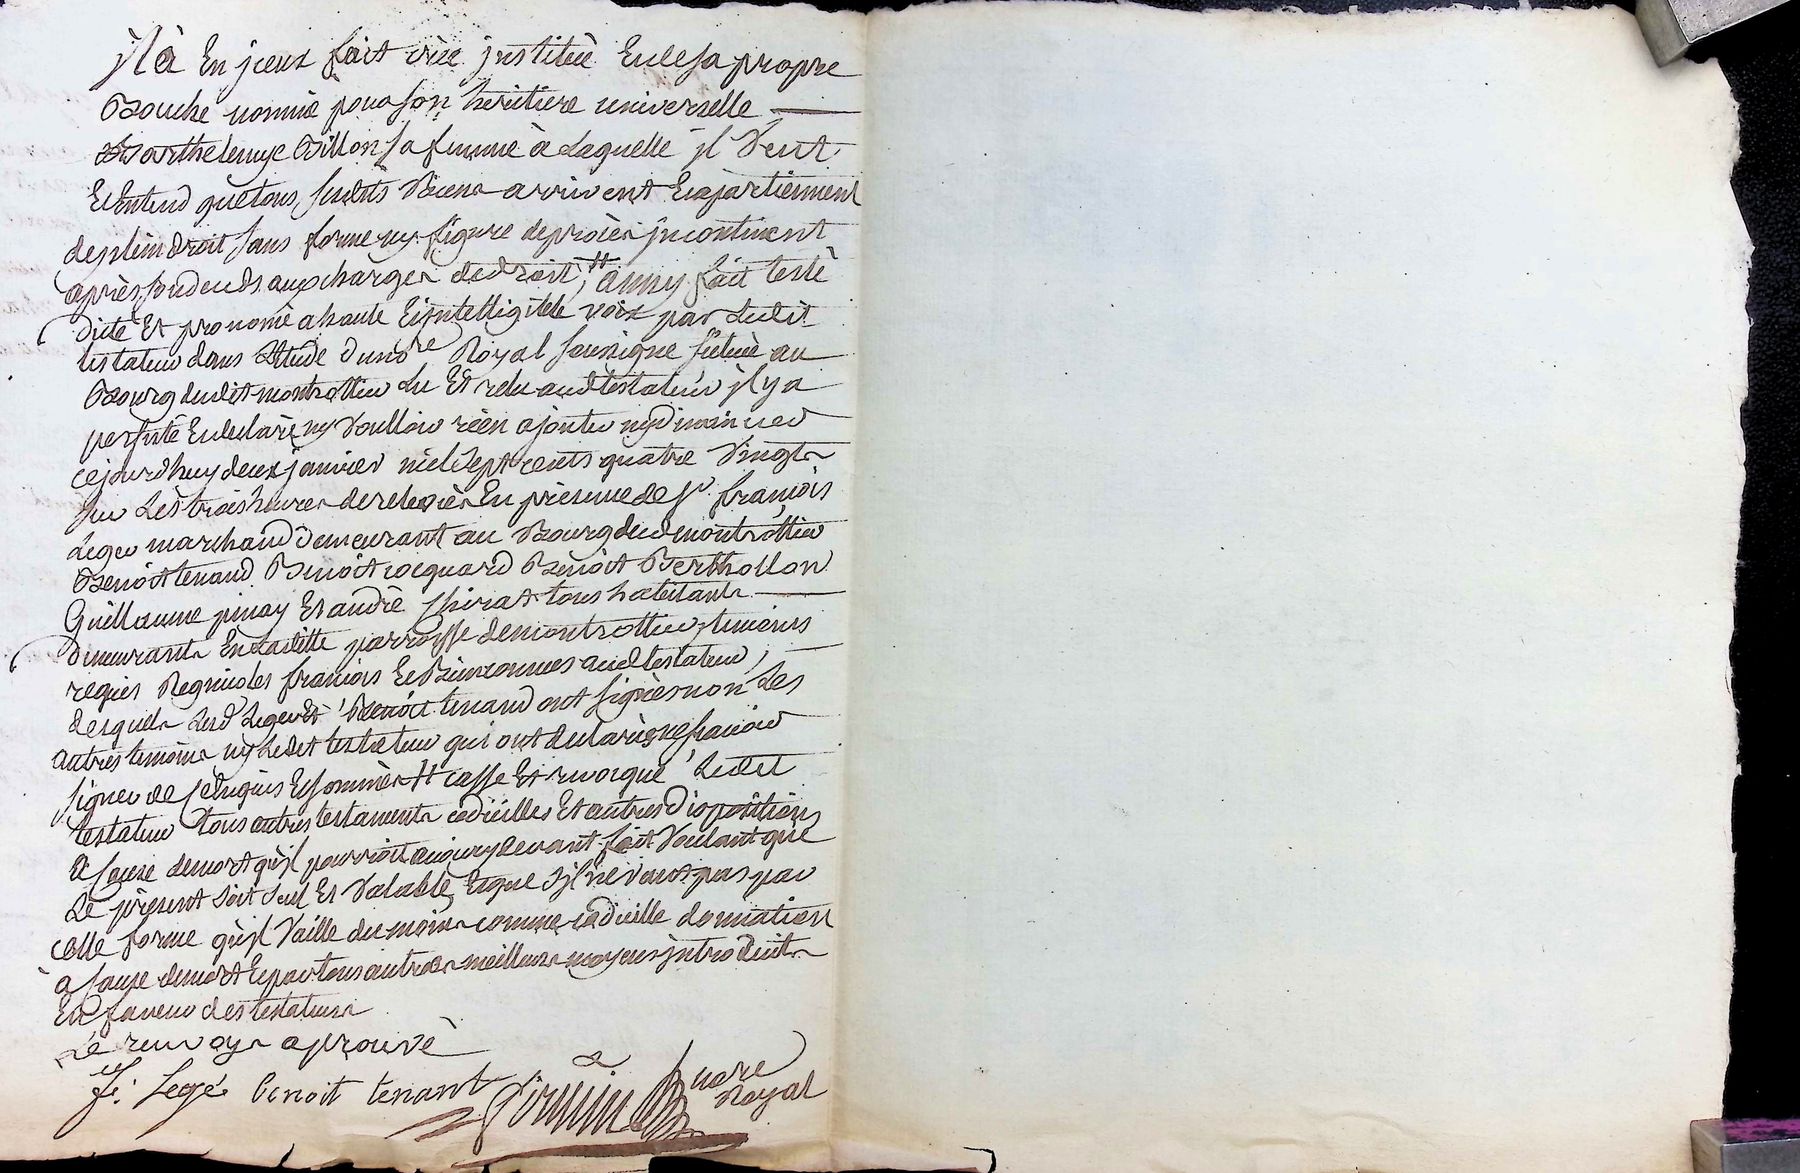 il à En jceux fait vie jnstituè Et de sa propre
Bouche nommè pour son heritiere universelle
Barthelemye Billon sa femme à Laquelle jl Veut
Et Entend què tous susdits Biens arrivent Et apartiennent
de plein droit sans forme ny figure de procès jncontinent
après son deceds aux charges de droit, # ainsy fait testè
dictè Et prononcè a haute Et jntelligible voix par Ledit
testateur dans L'Etude du no.re Royal soussignè scituèe au
Bourg dudit montrottier Lu Et relu audt testateur jl y a
persistè Et declarè ny Vouloir rien ajouter ny diminuer
cejourdhuy deux janvier mil sept cents quatre Vingts
sur Les trois heures de relevèe En presence de sr. françois
Leger marchand demeurant au Bourg dud montrottier
Benoit tenand Benoit cocquard Benoit Berthollon
Guillaume pinay Et andrè Chirat tous habitants
demeurants En Laditte parroisse de montrottier, temoins
requis Regnicoles françois Et Bien connus aud testateur,
desquels Led Leger Et Benoit tenand ont signès non Les
autres temoins ny Ledit testateur qui ont declarès ne sçavoir
signer de ce Enquis Et sommès # casse Et revocque Ledit
testateur tous autres testaments codicilles Et autres Dispositions
à cause de mort qu'jl pourroit avoir cy devant fait Voulant què
Le present soit seul Et Valable Et que s'jl ne Vaut pas par
cette forme qu'jl Vaille du moins comme codicille donnation
à cause de mort Et par tous autres meilleurs moyens jntroduits
En faveur des testateurs
Le renvoys aprouvè
f. Legé benoit tenant
no.re Royal